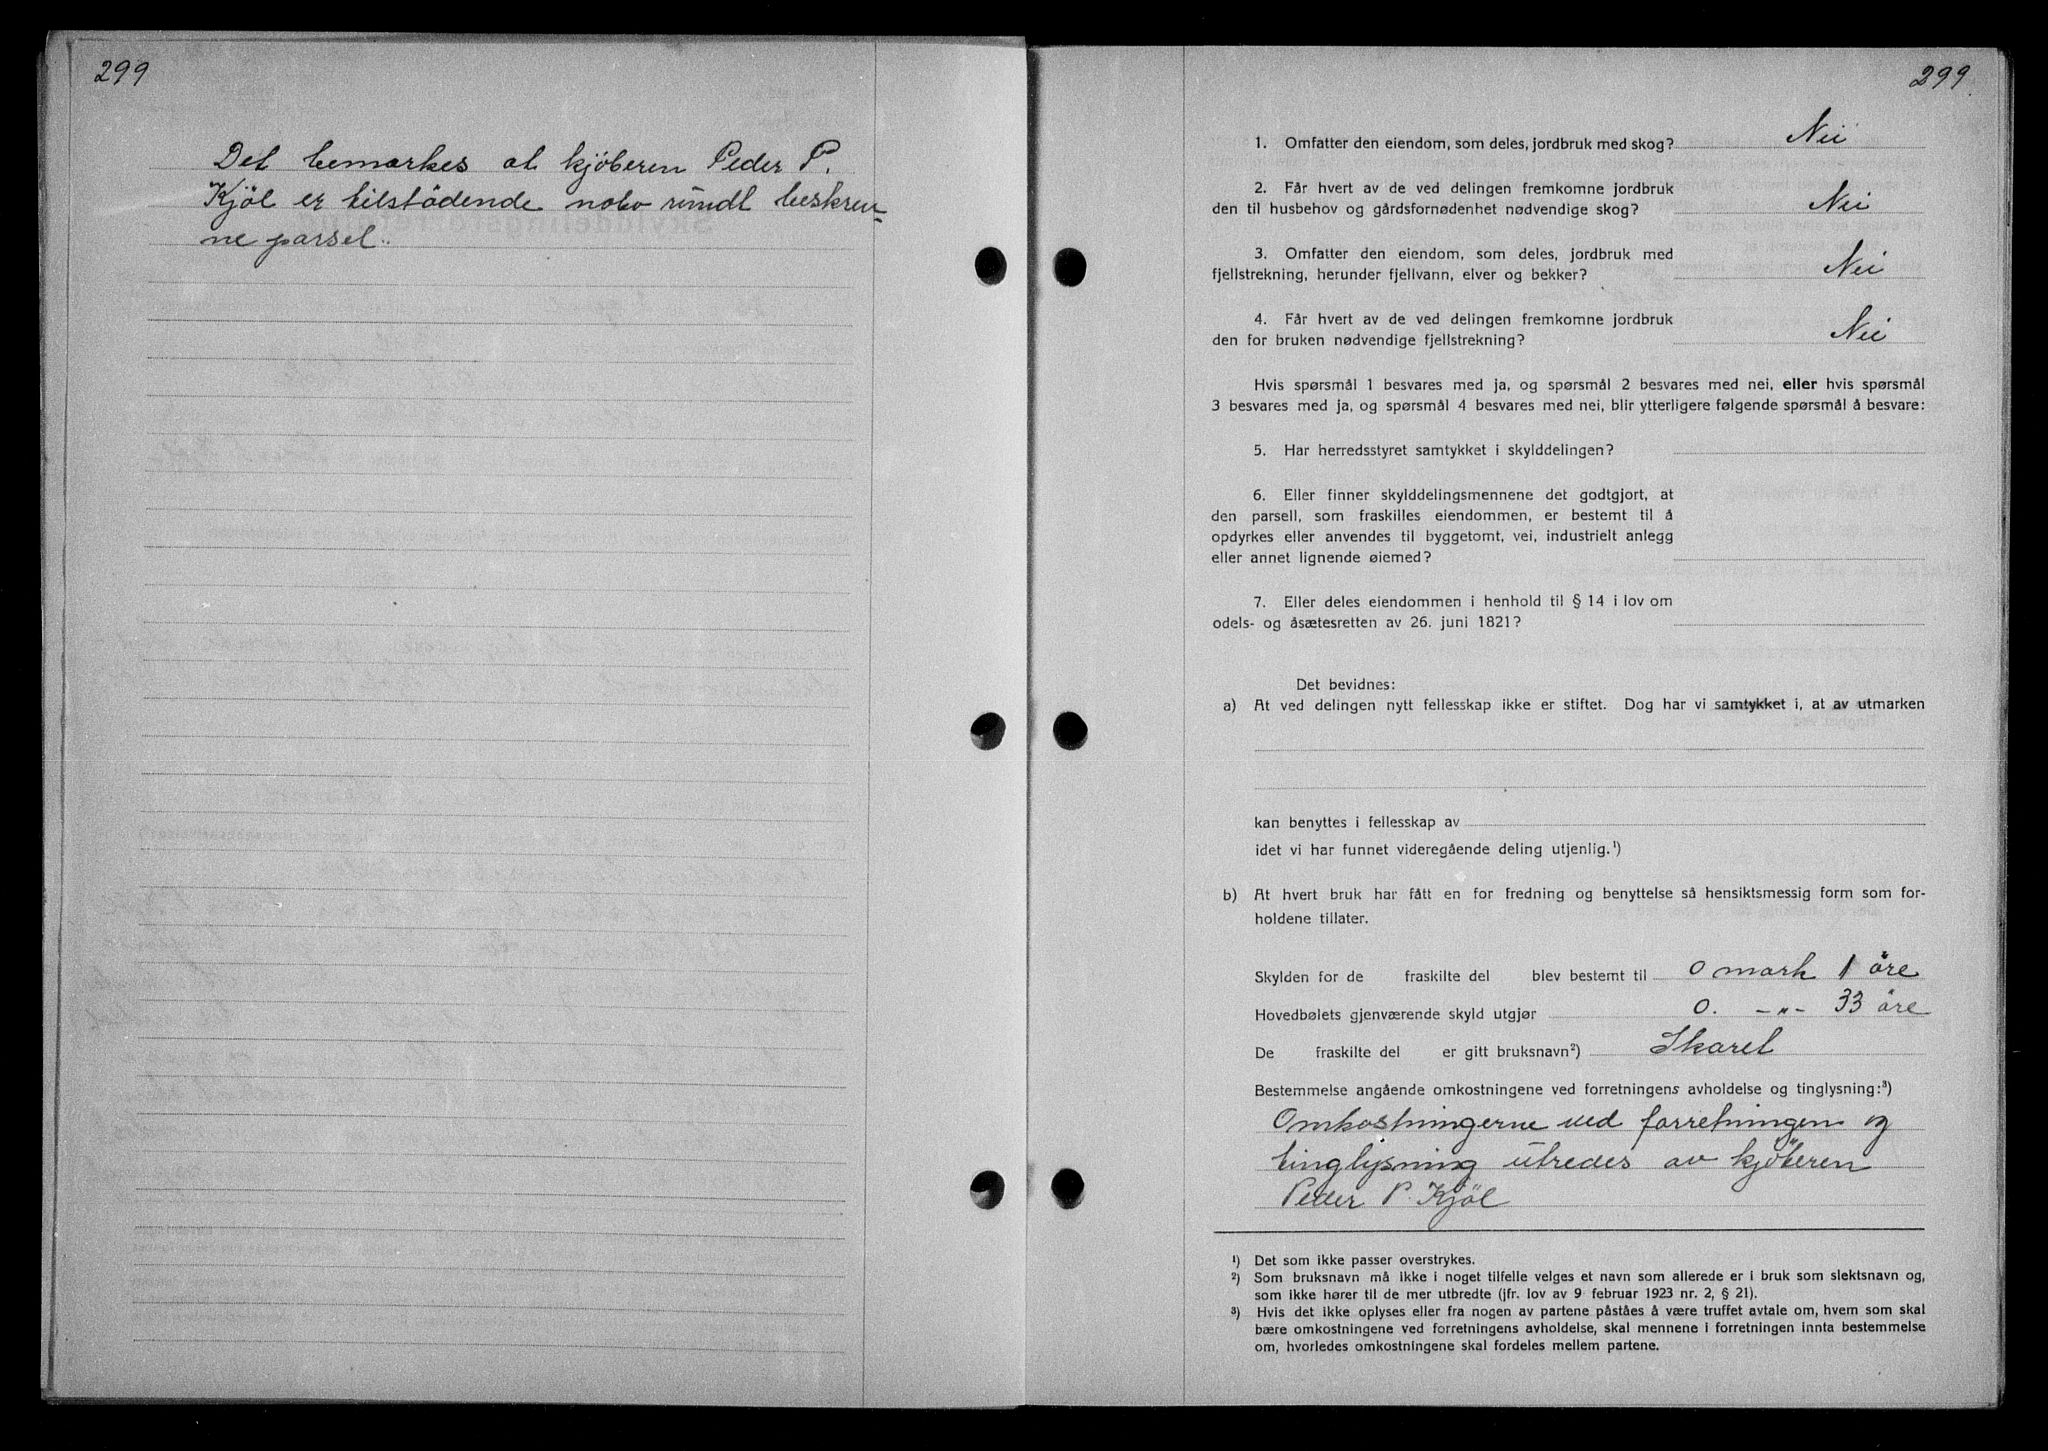 299
Det bemærkes at kjøberen Peder P.
Kjöl er tilstödende nabo rundt beskrev-
ne parsel.
299.
1. Omfatter den eiendom, som deles, jordbruk med skog? Nei
2. Får hvert av de ved delingen fremkomne jordbruk
den til husbehov og gårdsfornødenhet nødvendige skog? Nei
3. Omfatter den eiendom, som deles, jordbruk med
fjellstrekning, herunder fjellvann, elver og bekker? Nei
4. Får hvert av de ved delingen fremkomne jordbruk
den for bruken nødvendige fjellstrekning? Nei
Hvis spørsmål 1 besvares med ja, og spørsmål 2 besvares med nei, eller hvis spørsmål
3 besvares med ja, og spørsmål 4 besvares med nei, blir ytterligere følgende spørsmål å besvare:
5. Har herredsstyret samtykket i skylddelingen?
6. Eller finner skylddelingsmennene det godtgjort, at
den parsell, som fraskilles eiendommen, er bestemt til å
opdyrkes eller anvendes til byggetomt, vei, industrielt anlegg
eller annet lignende øiemed?
7. Eller deles eiendommen i henhold til § 14 i lov om
odels- og åsætesretten av 26. juni 1821?
Det bevidnes:
a) At ved delingen nytt fellesskap ikke er stiftet. Dog har vi samtykket i, at av utmarken
kan benyttes i fellesskap av
idet vi har funnet videregående deling utjenlig.¹)
b) At hvert bruk har fått en for fredning og benyttelse så hensiktsmessig form som for-
holdene tillater.
Skylden for de fraskilte del blev bestemt til 0 mark 1 öre
Hovedbølets gjenværende skyld utgjør 0. -"- 33 öre
De fraskilte del er gitt bruksnavn²) Skaret
Bestemmelse angående omkostningene ved forretningens avholdelse og tinglysning:³)
Omkostningerne ved forretningen og
tinglysning utredes av kjöberen
Peder P. Kjöl
¹) Det som ikke passer overstrykes.
²) Som bruksnavn må ikke i noget tilfelle velges et navn som allerede er i bruk som slektsnavn og,
som ikke hører til de mer utbredte (jfr. lov av 9 februar 1923 nr. 2, § 21).
³) Hvis det ikke oplyses eller fra nogen av partene påståes å være truffet avtale om, hvem som skal
bære omkostningene ved forretningens avholdelse, skal mennene i forretningen innta bestemmelse
om, hvorledes omkostningene skal fordeles mellem partene.